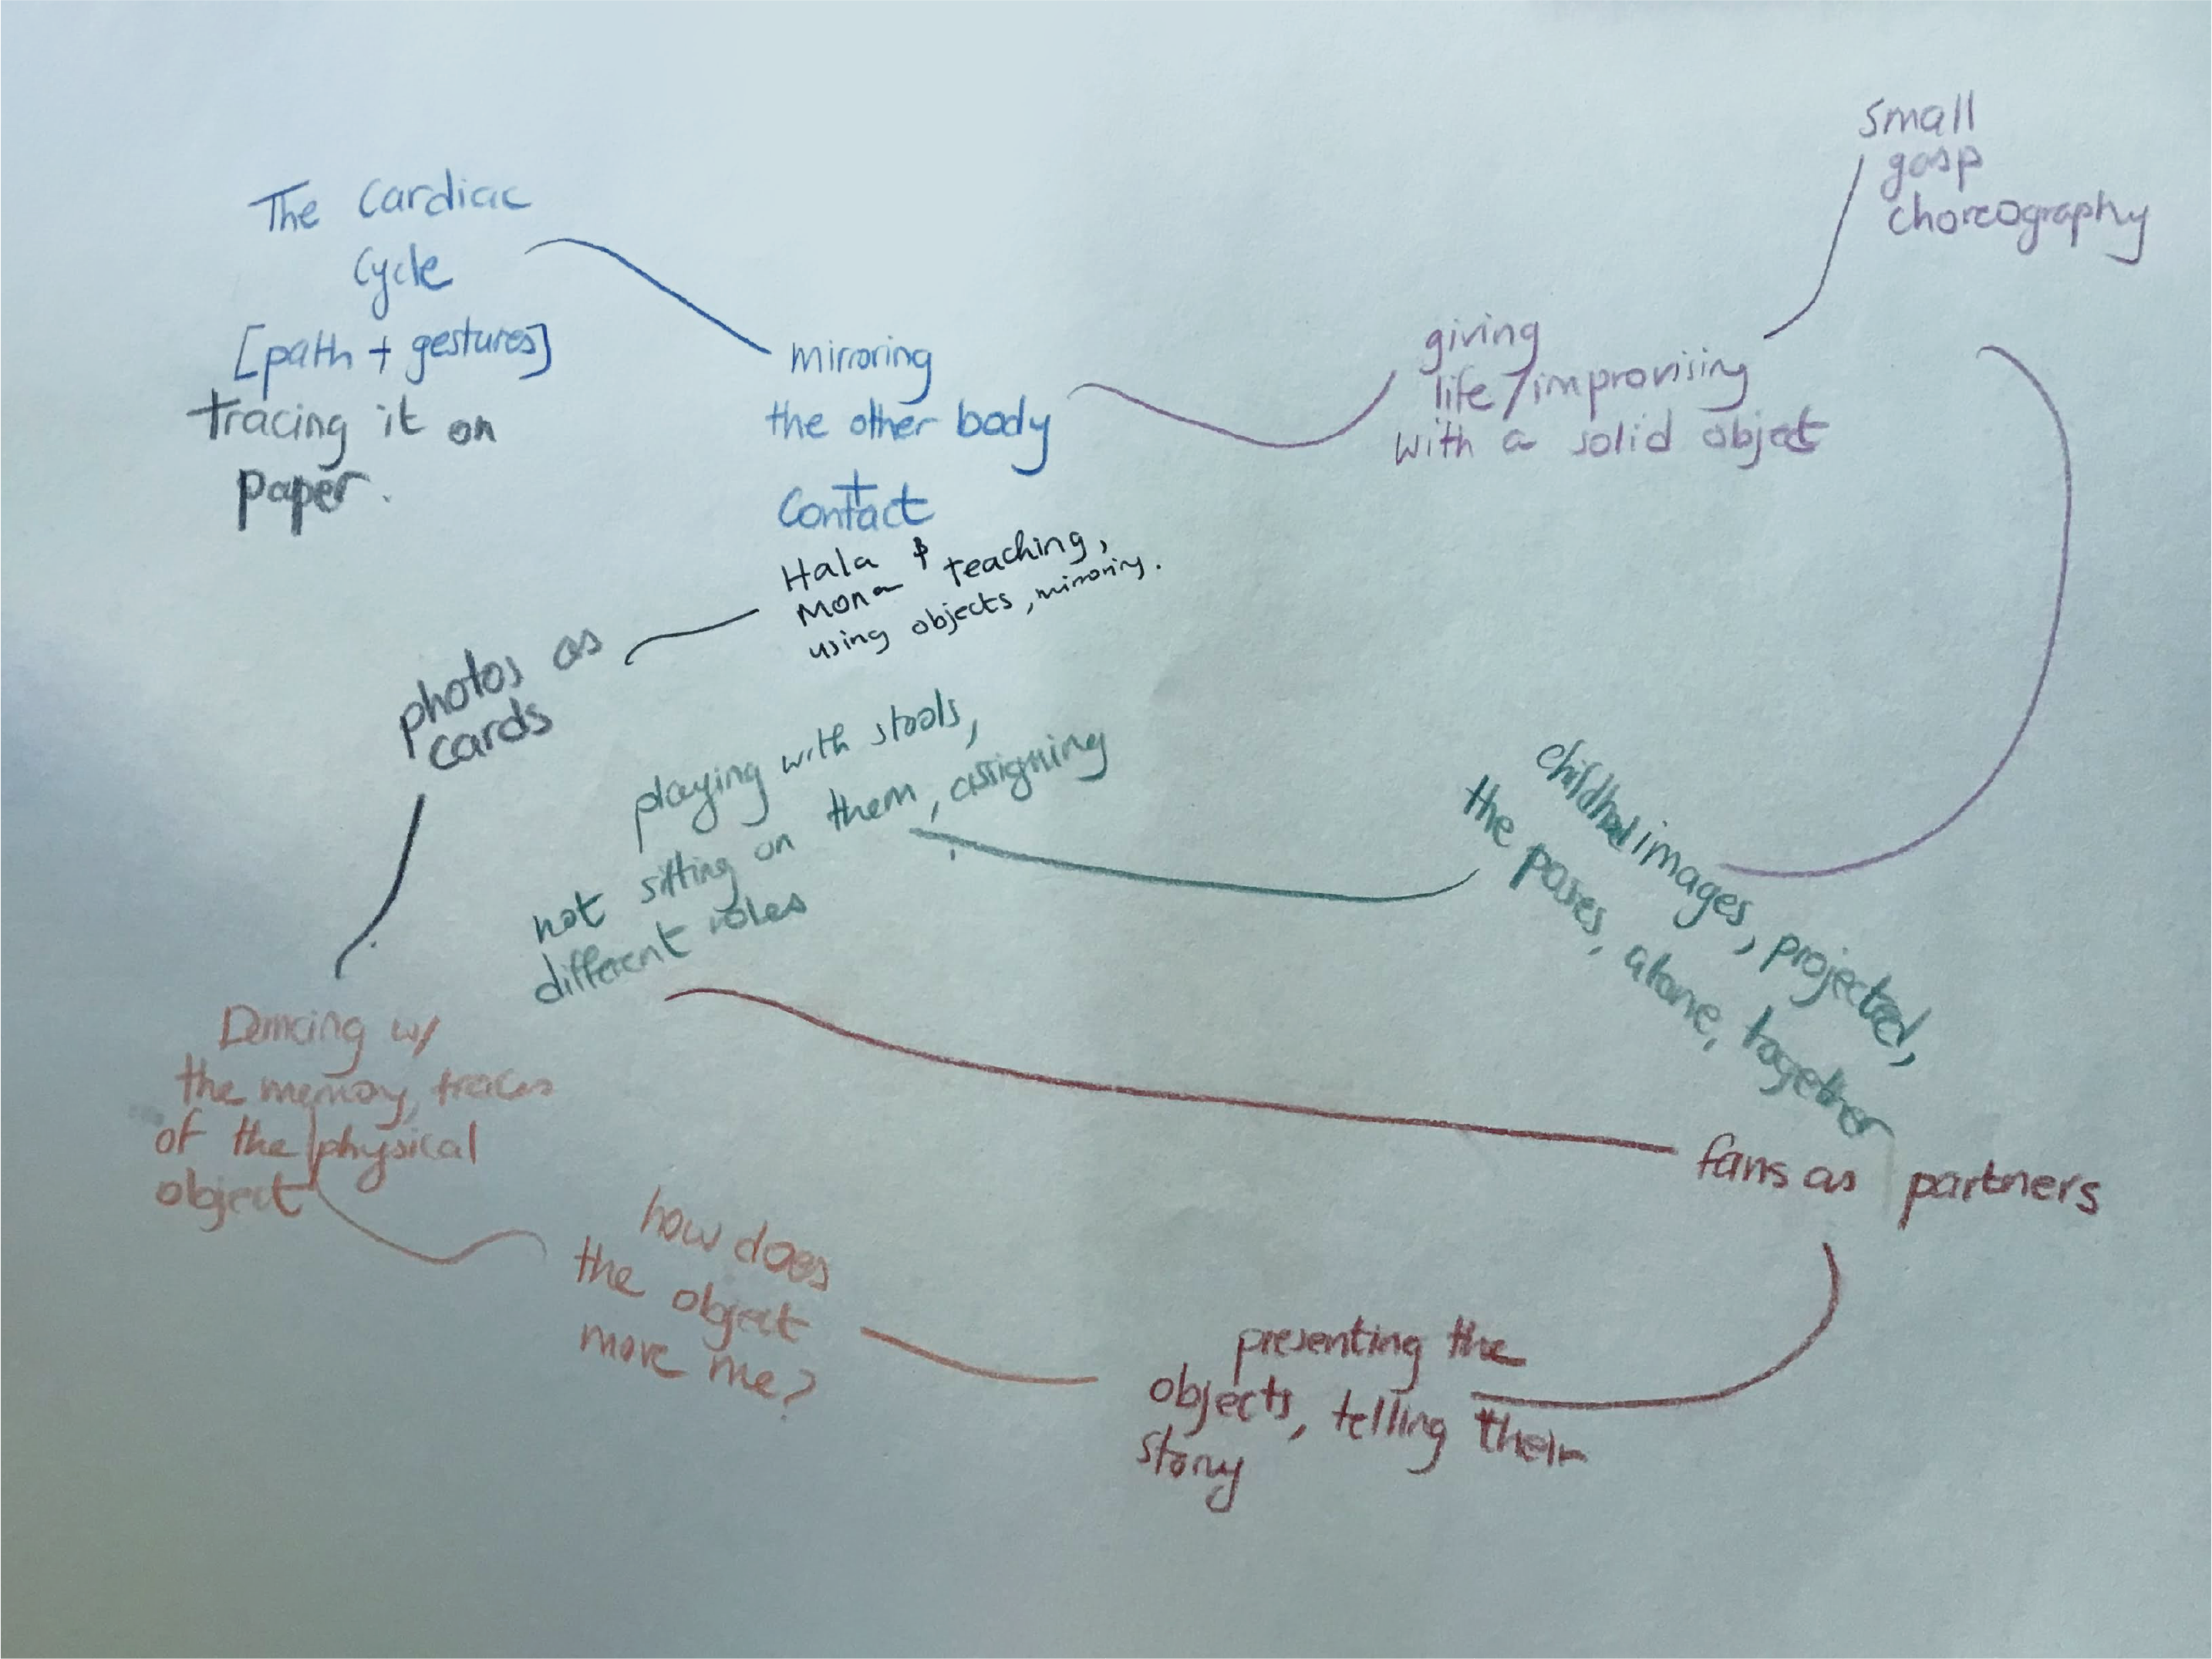 The Cardiac
Cycle
[path + gestures]
tracing it on
paper.
mirroring
the other body
+
Contact
Hala &
Mona teaching,
using objects, mirroring.
giving
life/improvising
with a solid object
small
gasp
choreography
childhood images, projected,
the poses, alone, together
playing with stools,
not sitting on them, assigning
different roles
fans as partners
presenting the
objects, telling their
story
how does
the object
move me?
Dancing w/
the memory, traces
of the physical
object
photos as
cards